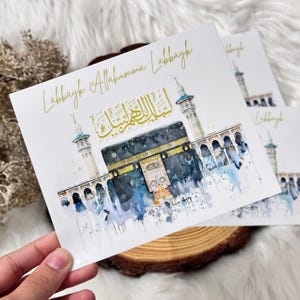 Labbayk Allahumma Labbayk
لبيك اللهم لبيك
Labbayk